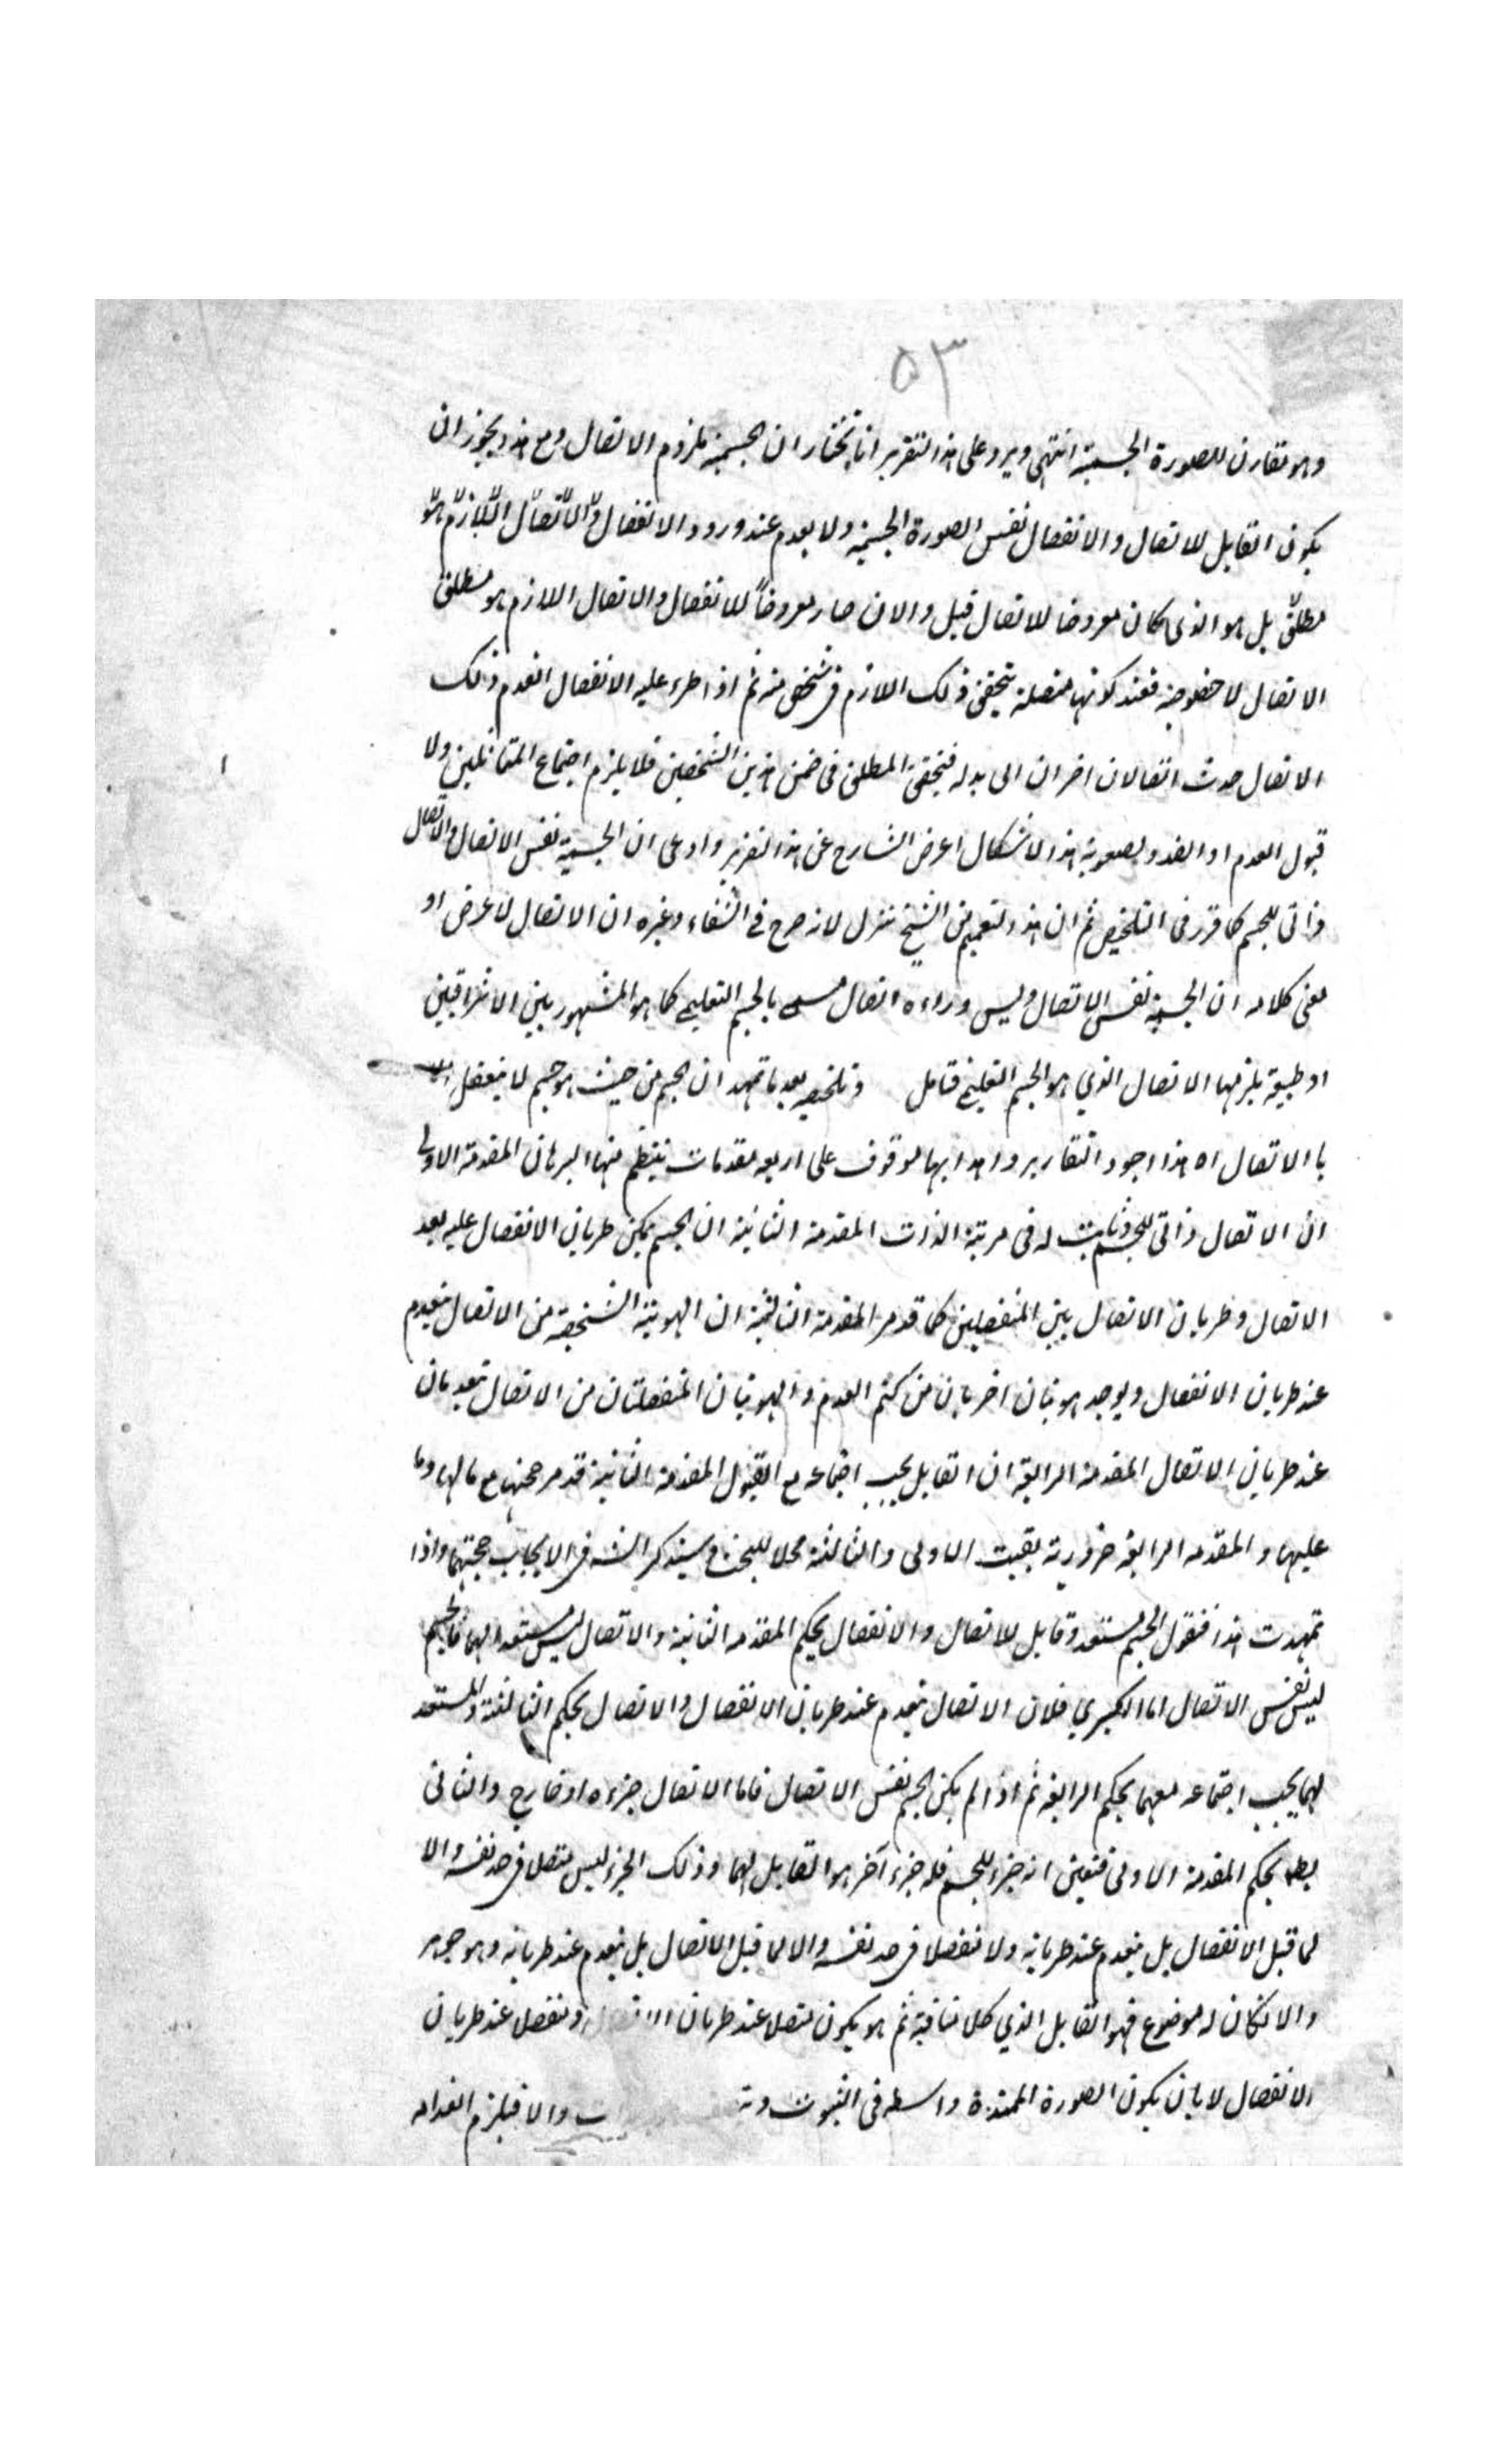 ٥٣
وهو تقارن للصورة الجسمية انتهى ويرد على هذا التقرير انا نختار ان الجسمية ملزوم الاتصال ومع هذا يجوز ان
يكون القابل للاتصال والانفصال نفس الصورة الجسمية ولا يعدم عند ورود الانفصال والاتصال اللازم هو
مطلق بل هو الذي كان معروضا للاتصال قبل والان صار معروضاً للانفصال والاتصال اللازم هو مطلق
الاتصال لا خصوصية فعند كونها متصلة يتحقق ذلك اللازم في شخص منه ثم اذا طرء عليه الانفصال انعدم ذلك
الاتصال حدث اتصالان اخران الى بدله فيتحقق المطلق في ضمن هذين الشخصين فلا يلزم اجتماع المتقابلين ولا
قبول العدم او الضد ولصعوبة هذا الاشكال اعرض الشارح عن هذا التقرير وادعى ان الجسمية نفس الاتصال والاتصال
ذاتي للجسم كما قرر في التلخيص ثم ان هذا التعميم من الشيخ تنزل لانه صرح في الشفاء وغيره ان الاتصال لا عرض او
معنى كلامه ان الجسمية نفس الاتصال وليس وراءه اتصال مسمى بالجسم التعليمي كما هو المشهور بين الاشراقيين
او طبيعة يلزمها الاتصال الذي هو الجسم التعليمي فتامل وتلخيصه بعد ما تمهد ان الجسم من حيث هو جسم لا يتعقل الا
با الاتصال اه هذا اجود التقارير وابداها موقوف على اربعه مقدمات ينتظم منها البرهان المقدمة الاولى
ان الاتصال ذاتي للجسم وثابت له في مرتبة الذات المقدمة الثانية ان الجسم يمكن طريان الانفصال عليه بعد
الاتصال وطريان الاتصال بين المنفصلين كما قد مر المقدمة الثالثة ان الهوية الشخصية من الاتصال ينعدم
عند طريان الانفصال ويوجد هويتان اخريان من كتم العدم والهويتان المنفصلتان من الاتصال تنعدمان
عند طريان الاتصال المقدمة الرابعة ان القابل يجب اجتماعه مع القبول المقدمة الثانية قد مر حجتها مع مالها وما
عليها والمقدمه الرابعة ضرورية بقيت الاولى والثالثة محلا للبحث وسيذكر الش في الايجاب حجتهما واذا
تمهدت هذا فنقول الجسم مستعد وقابل للاتصال والانفصال بحكم المقدمه الثانية والاتصال ليس مستعدا لهما فالجسم
ليس نفس الاتصال اما الكبرى فلان الاتصال ينعدم عند طريان الانفصال والاتصال بحكم الثالثة والمستعد
لهما يجب اجتماعه معهما بحكم الرابعة ثم اذا لم يكن الجسم نفس الاتصال فاما الاتصال جزءه او خارج والثاني
بط بحكم المقدمة الاولى فتعين انه جزء للجسم فله جزء آخر هو القابل لهما وذلك الجزء ليس متصلا في حد نفسه والا
لما قبل الانفصال بل ينعدم عند طريانه ولا منفصلا في حد نفسه والا لما قبل الاتصال بل ينعدم عند طريانه وهو جوهر
والا لكان له موضوع فهو القابل الذي كلامنا فيه ثم هو يكون متصلا عند طريان الاتصال ومنفصلا عند طريان
الانفصال لا بان يكون الصورة الممتدة واسطه في الثبوت والا فيلزم انعدامه